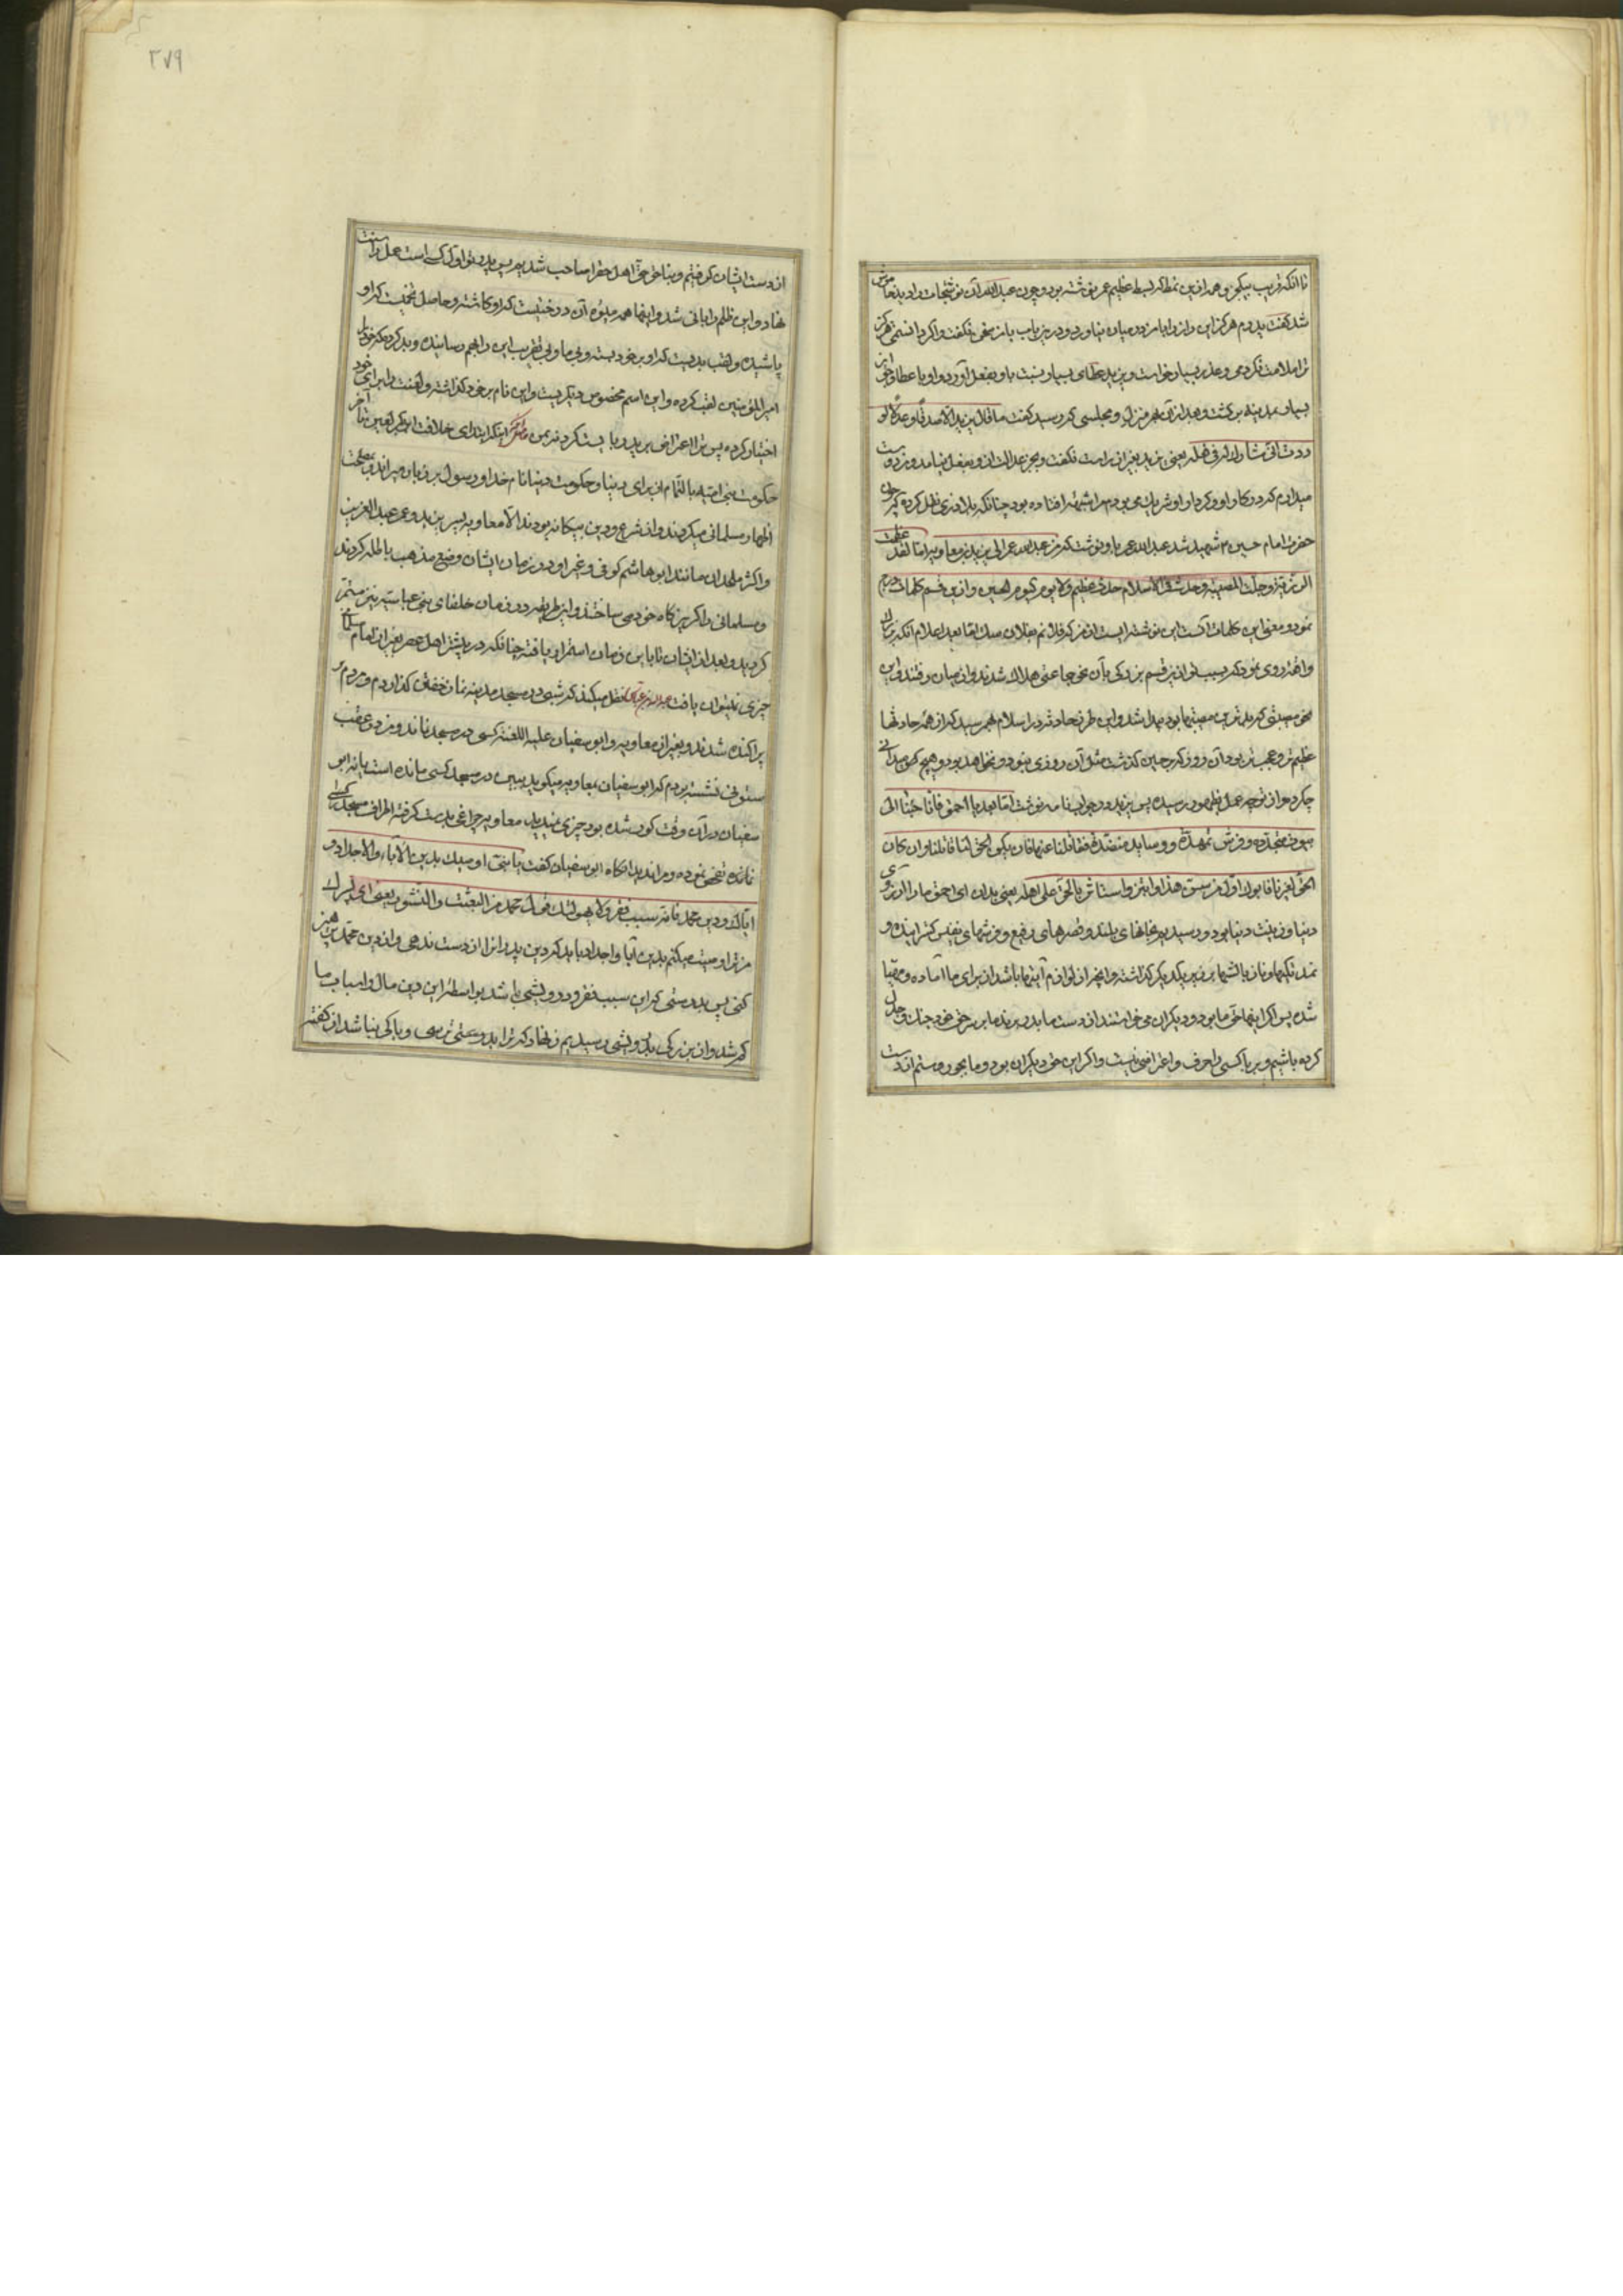 تا انکه قریب بیکجزو همه ازین نمط که لبط عظیم عمر نوشته بود و چون عبدالله آن نوشتجات را دید خاموش
شد گفت پدرم هرگز این راز را با من در میان نیاورد و درین باب با من سخن نگفت و اگر دانستمی هرگز
ترا ملامت نکردمی و عذر بسیار خواست و یزید عطای بسیار نسبت باو بفعل آورد و او با عطا و جوایز
بسیار بمدینه برگشت و بعد از آن بهر منزل و مجلسی که رسید گفت ما قال یزید الا صدقا و عدلا و لو
وددت انی شارک له فی فعله یعنی یزید بغیر از راست نگفت و بجز عدالت ازو بفعل نیامد و من دوست
میدارم که در کار او و کردار او شریک می بودم
حضرت امام حسین ۴ شهید شد عبدالله عمر باو نوشت که من عبدالله عمر الی یزید بن معاویه اما لقد عظمت
الرزیة و جلت المصیبة و حدث فی الاسلام حدث عظیم و لا یوم کیوم الحسین و ازین قسم کلمات درج
نمود و معنی این کلمات آنست این نوشته ایست از من که فلانم بفلان
واقعه روی نمود که بسبب
مصیبتی که بدترین مصیبتها بود پیدا شد و این طرفه حادثه در اسلام بهم رسید که از همه حادثها
عظیم تر و عجب تر بود آن روز که بر حسین گذشت مثل آن روزی نبود و نخواهد بود و هیچ میدانی
چکردی و از تو چه عمل بظهور رسیده پس یزید در جواب نامه نوشت اما بعد یا احمق فانا جئنا الی
بیوت منجدة و فرش ممهدة و وساید منضدة فقاتلنا عنها فان یکن الحق لنا قاتلنا و ان کان
الحق لغیرنا فابوک اول من سن هذا و ابتز و استاثر بالحق علی اهله یعنی بدان ای احمق ما را آرزوی
دنیا و زینت دنیا بود و رسیدیم بخانهای بلند و قصرهای رفیع و فرشهای نفیس گسترانیده و
تکیها و ناز بالشها بر زبر یکدیگر گذاشته و آنچه از لوازم اینها باشد از برای ما آماده و مهیا
شده پس اگر اینها حق ما بود و دیگران می خواستند از دست ما بدر برند ما بر سر حق خود جنک و جدل
کرده باشیم و بر ما کسی را حرف و اعتراضی نیست و اگر این حق دیگران بود و ما بجور و ستم از دست
۲۷۹
از دست ایشان گرفتیم و بناحق حق اهل حق را صاحب شدیم پس پدر تو اول کسی است که این عمل را سنت
نهاد و این ظلم را بانی شد و اینها همه میوه آن درختیست که او کاشته و حاصل تخمیست که او
پاشیده و لقب بدیست که او بر خود بسته
امیرالمؤمنین لقب کرده و این اسم مخصوص دیگریست و این نام بر خود گذاشته و لعنت را برای خود
اختیار کرده پس ترا اعتراض بر پدر بایست کرد نه بمن ابتدای خلافت ابوبکر لعین تا آخر
حکومت بنی امیه بالتمام از برای دنیا و حکومت دنیا نام خدا و رسول بر زبان میراندند و بمصلحت
اظهار مسلمانی میکردند و از شرع و دین بیگانه بودند الا معاویه پسر یزید و عمر عبدالعزیز
و اکثر ملحدان مانند ابو هاشم کوفی و غیر او در زمان ایشان وضع مذهب باطله کردند
و مسلمانی را گریزگاه خود می ساختند و این طریقه در زمان خلفای بنی عباسیه نیز مستمر
گردید و بعد از ایشان تا باین زمان استمرار یافته چنانکه در بیشتر اهل عصر بغیر از نام مسلمانی
چیزی نمیتوان یافت عبدالله بن عباس نقل میکند که شبی در مسجد مدینه نماز خفتن گذاردم و مردم
پراکنده شدند و بغیر از معاویه و ابو سفیان علیه اللعنه کسی در مسجد نماند و من در عقب
ستونی نشسته بودم که ابو سفیان بمعاویه میگوید ببین در مسجد کسی مانده است یا نه ابو
سفیان در آن وقت کور شده بود چیزی نمیدید معاویه چراغی بدست گرفته اطراف مسجد کسی
نمانده تفحص نموده و مرا ندید آنگاه ابو سفیان گفت یا بنی اوصیک بدین الآباء و الاجداد و
ایاک و دین محمد فانه سبب فقر و لا یهولنک قول محمد من البعث و النشور یعنی ای پسرک
من ترا وصیت میکنم بدین آبا و اجداد باید که دین پدران را از دست ندهی و از دین محمد پرهیز
کنی پس بدرستی که این سبب فقر و درویشی باشد بواسطه این دین مال و اسباب ما
کم شد و از بزرگی بدرویشی رسیدیم زنهار که ترا بدروغی ترسی و باکی نباشد از گفته